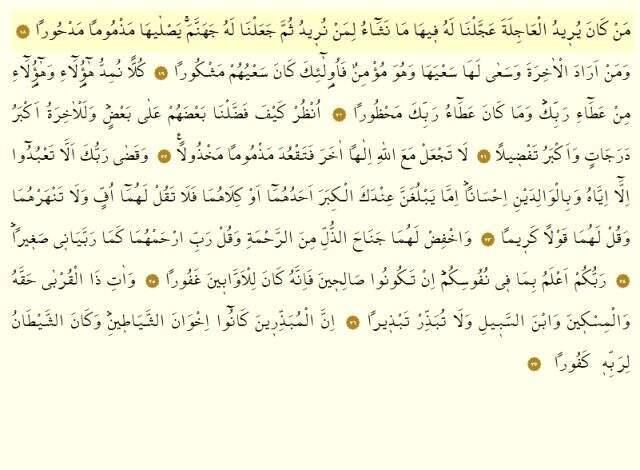 مَنْ كَانَ يُرِيدُ الْعَاجِلَةَ عَجَّلْنَا لَهُ فِيهَا مَا نَشَٓاءُ لِمَنْ نُرِيدُ ثُمَّ جَعَلْنَا لَهُ جَهَنَّمَۚ يَصْلٰيهَا مَذْمُومًا مَدْحُورًا ﴿١٨﴾
وَمَنْ اَرَادَ الْاٰخِرَةَ وَسَعٰى لَهَا سَعْيَهَا وَهُوَ مُؤْمِنٌ فَاُو۬لٰٓئِكَ كَانَ سَعْيُهُمْ مَشْكُورًا ﴿١٩﴾ كُلًّا نُمِدُّ هٰٓؤُ۬لَٓاءِ وَهٰٓؤُ۬لَٓاءِ
مِنْ عَطَٓاءِ رَبِّكَۜ وَمَا كَانَ عَطَٓاءُ رَبِّكَ مَحْظُورًا ﴿٢٠﴾ اُنْظُرْ كَيْفَ فَضَّلْنَا بَعْضَهُمْ عَلٰى بَعْضٍۜ وَلَلْاٰخِرَةُ اَكْبَرُ
دَرَجَاتٍ وَاَكْبَرُ تَفْضِيلًا ﴿٢١﴾ لَا تَجْعَلْ مَعَ اللّٰهِ اِلٰهًا اٰخَرَ فَتَقْعُدَ مَذْمُومًا مَخْذُولًا۟ ﴿٢٢﴾ وَقَضٰى رَبُّكَ اَلَّا تَعْبُدُٓوا
اِلَّٓا اِيَّاهُ وَبِالْوَالِدَيْنِ اِحْسَانًاۜ اِمَّا يَبْلُغَنَّ عِنْدَكَ الْكِبَرَ اَحَدُهُمَٓا اَوْ كِلَاهُمَا فَلَا تَقُلْ لَهُمَٓا اُفٍّ وَلَا تَنْهَرْهُمَا
وَقُلْ لَهُمَا قَوْلًا كَرِيمًا ﴿٢٣﴾ وَاخْفِضْ لَهُمَا جَنَاحَ الذُّلِّ مِنَ الرَّحْمَةِ وَقُلْ رَبِّ ارْحَمْهُمَا كَمَا رَبَّيَانِى صَغِيرًاۜ
﴿٢٤﴾ رَبُّكُمْ اَعْلَمُ بِمَا فِى نُفُوسِكُمْۜ اِنْ تَكُونُوا صَالِحِينَ فَاِنَّهُ كَانَ لِلْاَوَّابِينَ غَفُورًا ﴿٢٥﴾ وَاٰتِ ذَا الْقُرْبٰى حَقَّهُ
وَالْمِسْكِينَ وَابْنَ السَّبِيلِ وَلَا تُبَذِّرْ تَبْذِيرًا ﴿٢٦﴾ اِنَّ الْمُبَذِّرِينَ كَانُٓوا اِخْوَانَ الشَّيَاطِينِۜ وَكَانَ الشَّيْطَانُ
لِرَبِّهِ كَفُورًا ﴿٢٧﴾